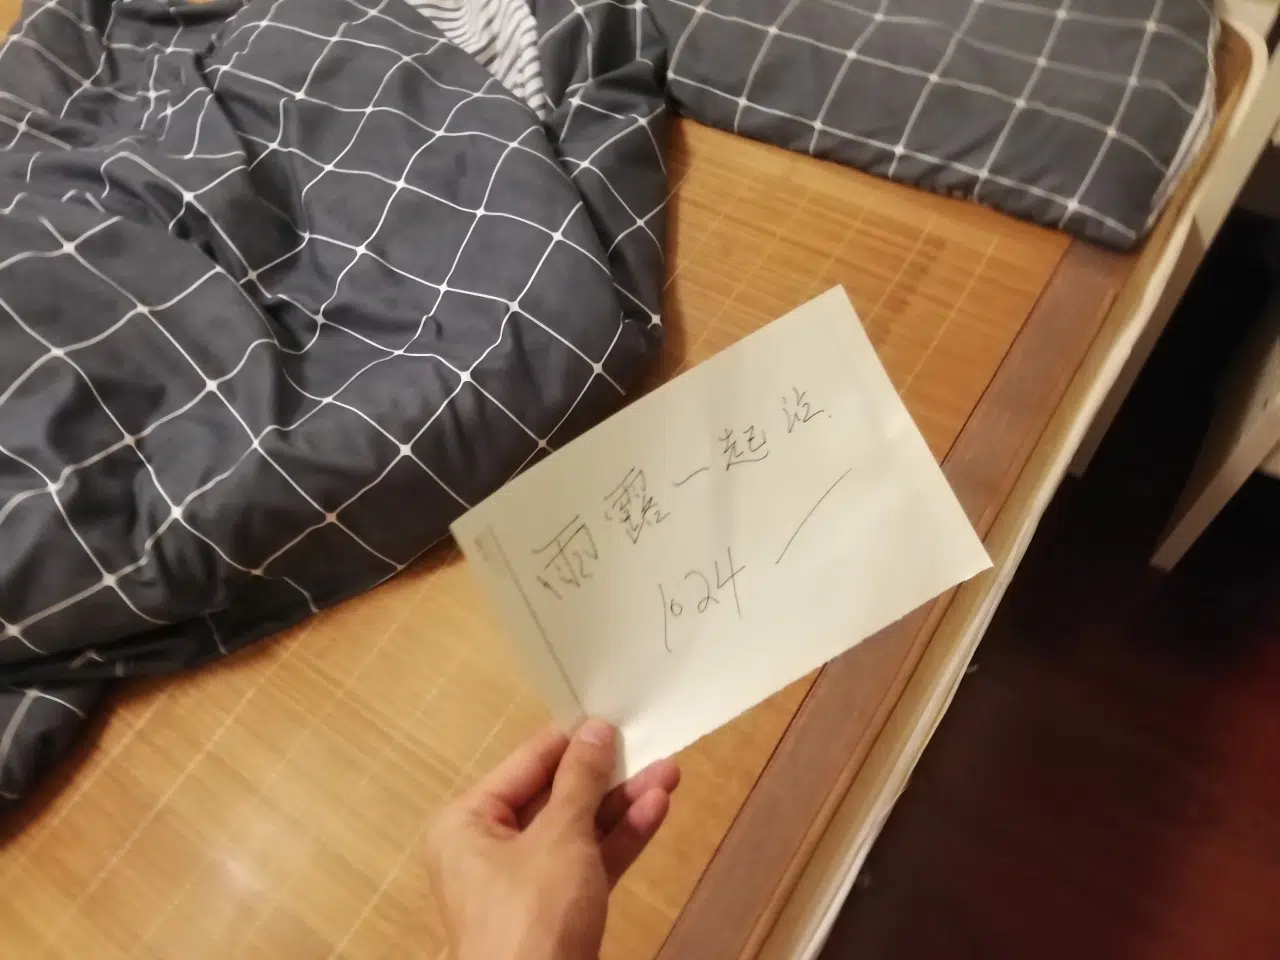 雨露一起沾.
1024